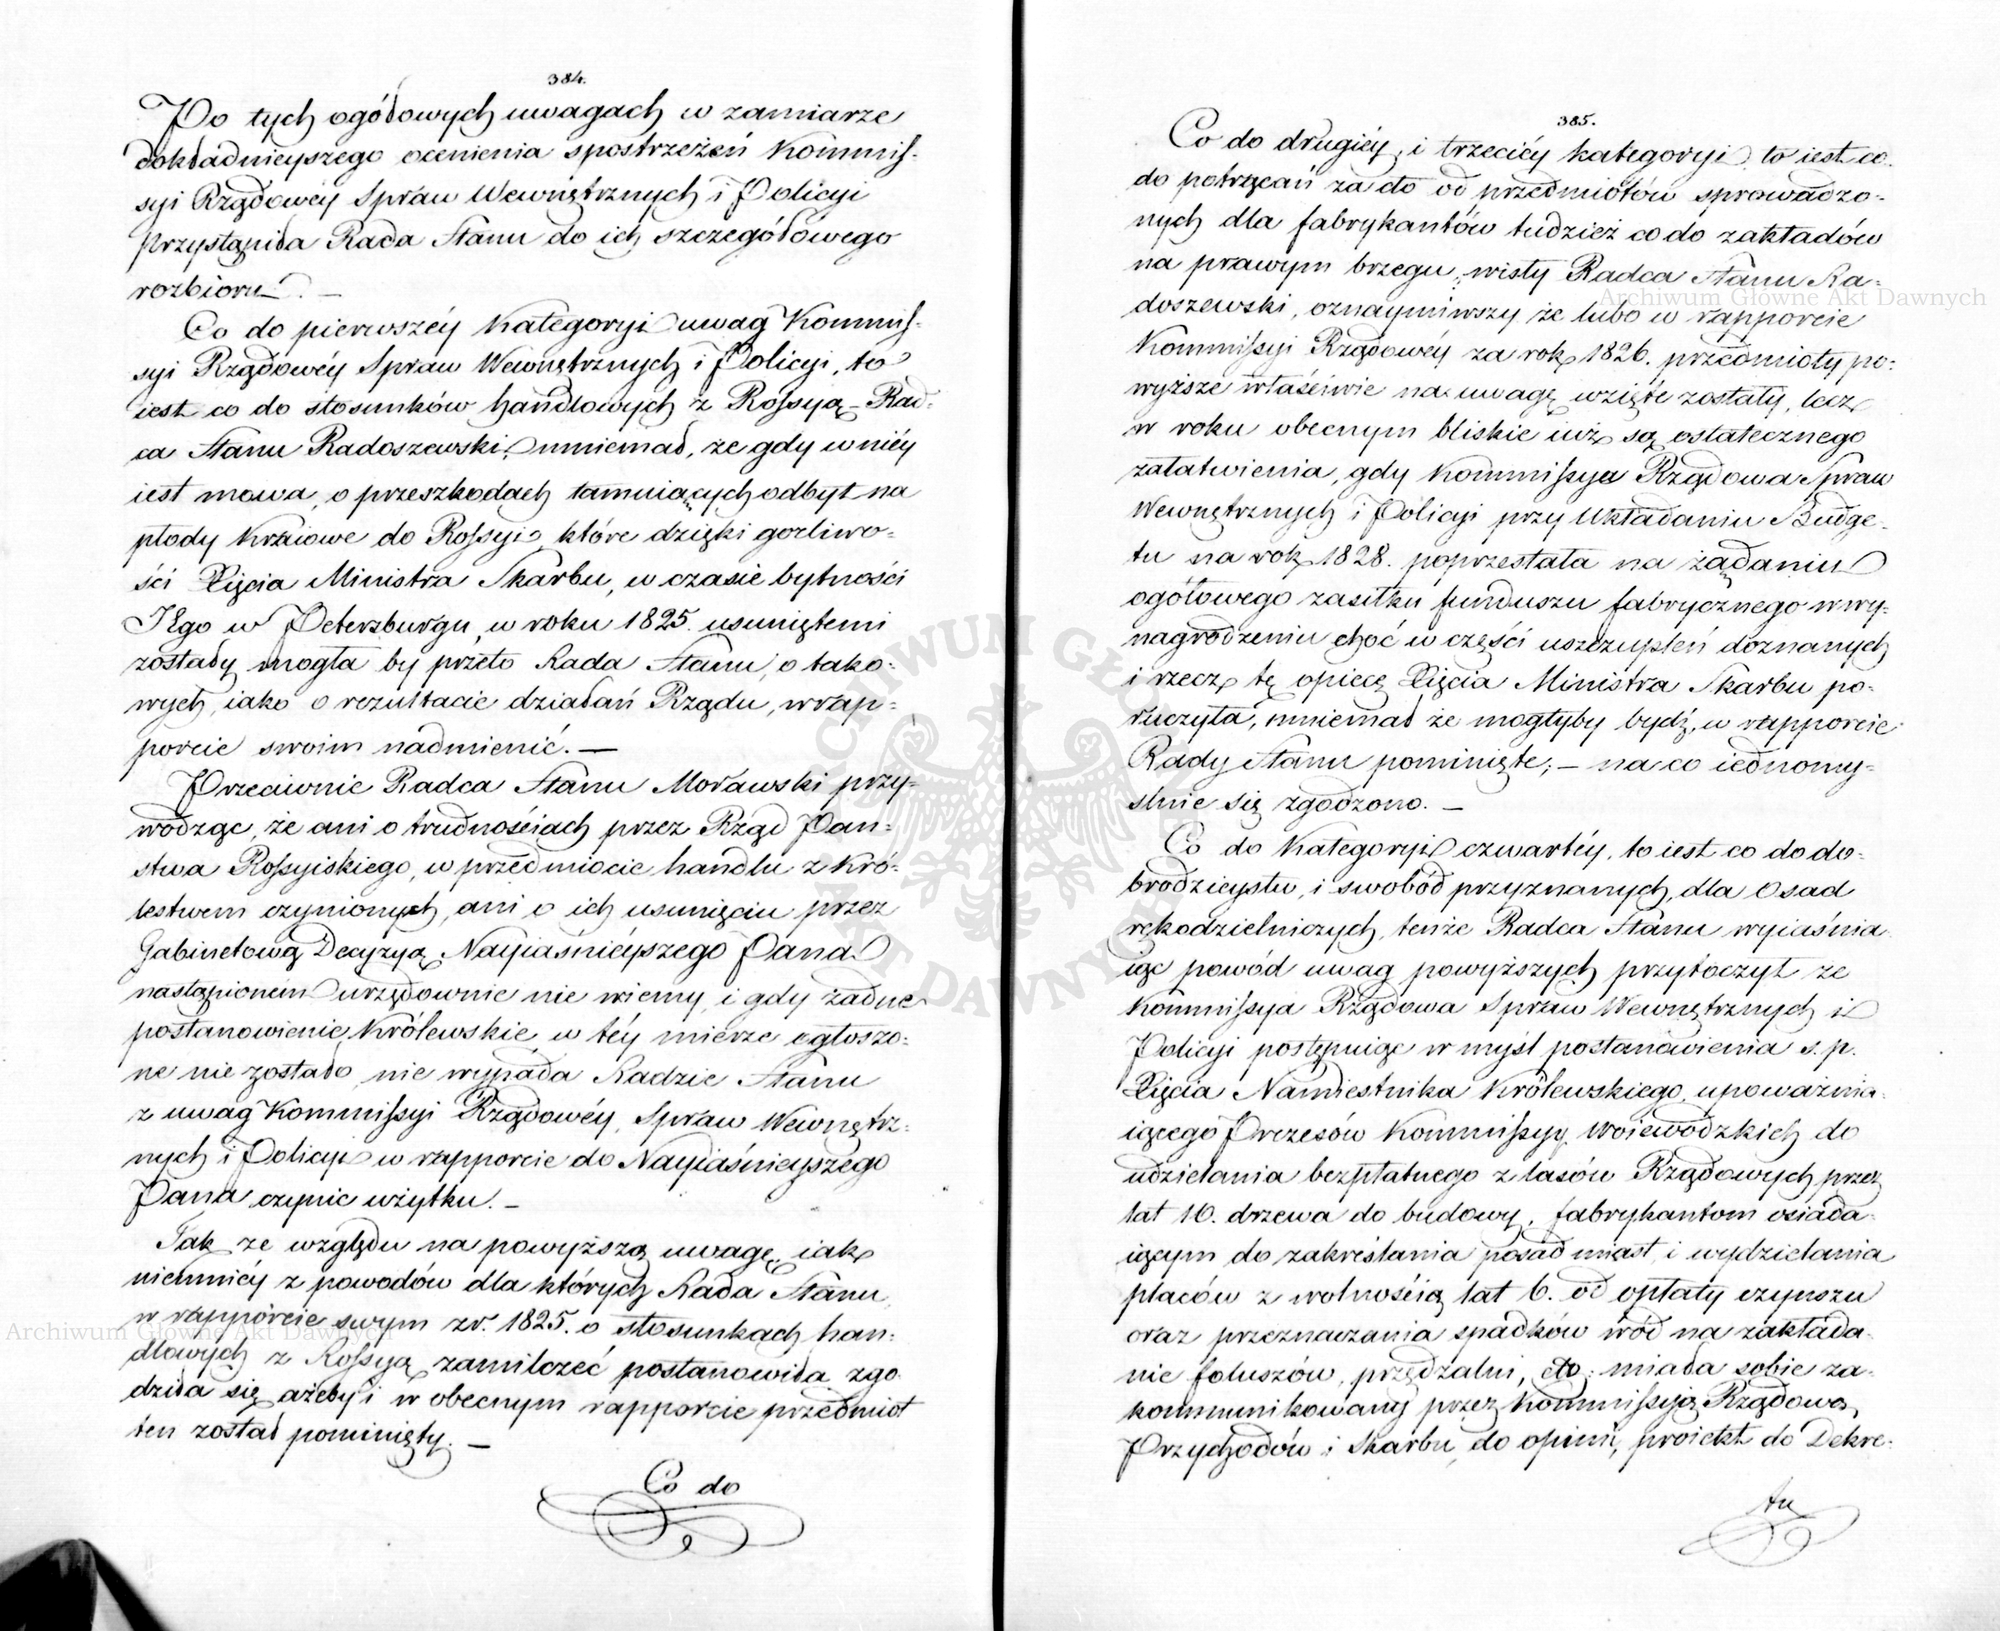 384.
Po tych ogółowych uwagach w zamiarze
dokładnieyszego ocenienia spostrzeżeń Kommis-
syi Rządowéy Spraw Wewnętrznych i Policyi
przystąpiła Rada Stanu do ich szczegółowego
rozbioru. —
Co do pierwszéy Kategoryi uwag Kommis-
syi Rządowéy Spraw Wewnętrznych i Policyi, to
iest co do stosunków handlowych z Rossyą Rad-
ca Stanu Radoszewski, mniemał, że gdy w niéy
iest mowa, o przeszkodach tamuiących odbyt na
płody Kraiowe do Rossyi, które dzięki gorliwo-
ści Xięcia Ministra Skarbu, w czasie bytności
JEgo w Petersburgu, w roku 1825. usuniętemi
zostały mogła by przeto Rada Stanu, o tako-
wych, iako o rezultacie działań Rządu, w rap-
porcie swoim nadmienić. —
Przeciwnie Radca Stanu Morawski przy-
wodząc, że ani o trudnościach przez Rząd Pań-
stwa Rossyiskiego, w przedmiocie handlu z Kró-
lestwem czynionych, ani o ich usunięciu przez
Gabinetową Decyzyą Nayiaśnieyszego Pana
nastąpionem urzędownie nie wiemy, i gdy żadne
postanowienie Królewskie w téy mierze ogłoszo-
ne nie zostało nie wypada Radzie Stanu
z uwag Kommissyi Rządowéy, Spraw Wewnętrz-
nych i Policyi w rapporcie do Nayiaśnieyszego
Pana czynić użytku. —
Tak ze względu na powyższą uwagę, iak
niemniéy z powodów dla których Rada Stanu
w rapporcie swym z r. 1825. o stosunkach han-
dlowych z Rossyą zamilczeć postanowiła zgo-
dziła się ażeby i w obecnym rapporcie przedmiot
ten został pominięty. —
Co do
385.
Co do drugiéy, i trzeciéy kategoryi to iest co
do potrąceń za cło od przedmiotów sprowadzo-
nych dla fabrykantów tudzież co do zakładów
na prawym brzegu, wisły Radca Stanu Ra-
doszewski, oznaymiwszy że lubo w rapporcie
Kommissyi Rządowéy za rok 1826. przedmioty po-
wyższe właściwie na uwagę wzięte zostały, lecz
w roku obecnym bliskie iuż są ostatecznego
załatwienia, gdy Kommissya Rządowa Spraw
Wewnętrznych i Policyi przy Układaniu Budge-
tu na rok 1828. poprzestała na żądaniu
ogółowego zasiłku funduszu fabrycznego w wy-
nagrodzeniu choć w części uszczupleń doznanych
i rzecz tę opiece Xięcia Ministra Skarbu po-
ruczyła, mniemał że mogłyby bydź, w rapporcie
Rady Stanu pominięte; — na co iednomy-
slnie się zgodzono. —
Co do Kategoryi czwartéy, to iest co do do-
brodzieystw, i swobód przyznanych, dla Osad
rękodzielniczych, tenże Radca Stanu wyiaśnia-
iąc powód uwag powyższych przytoczył że
Kommissya Rządowa Spraw Wewnętrznych i
Policyi postępuiąc w myśl postanowienia ś. p.
Xięcia Namiestnika Królewskiego, upoważnia-
iącego Prezesów Kommissyy Woiewódzkich do
udzielania bezpłatnego z lasów Rządowych przez
lat 10. drzewa do budowy, fabrykantom osiada-
iącym do zakreślania posad miast, i wydzielania
placów z wolnością lat 6. od opłaty czynszu
oraz przeznaczania spadków wód na zakłada-
nie foluszów, przędzalni, etc: miała sobie za-
kommunikowany przez Kommissyią Rządową
Przychodów i Skarbu, do opinii, proiekt do Dekre-
tu
Archiwum Główne Akt Dawnych
Archiwum Główne Akt Dawnych
ARCHIWUM GŁÓWNE AKT DAWNYCH